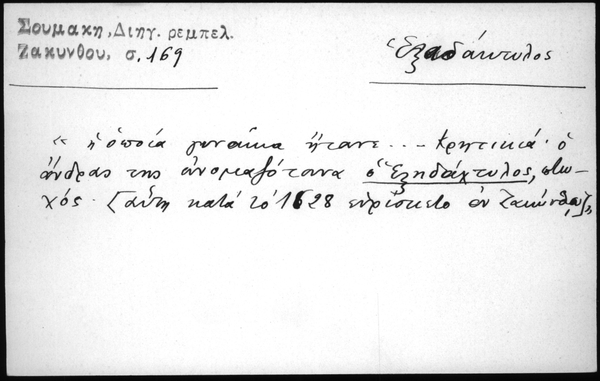 Σουμακη, Διηγ. ρεμπελ.
Ζακυνθου, σ. 169
Ἑξαδάκτυλος
« ἡ ὁποία γυναῖκα ἤτανε ... Κρητικιά· ὁ
ἄνδρας της ἀνομαζότανα ὁ Ἑξηδάχτυλος, πτω-
χός. [αὕτη κατά τό 1628 εὑρίσκετο ἐν Ζακύνθῳ]»